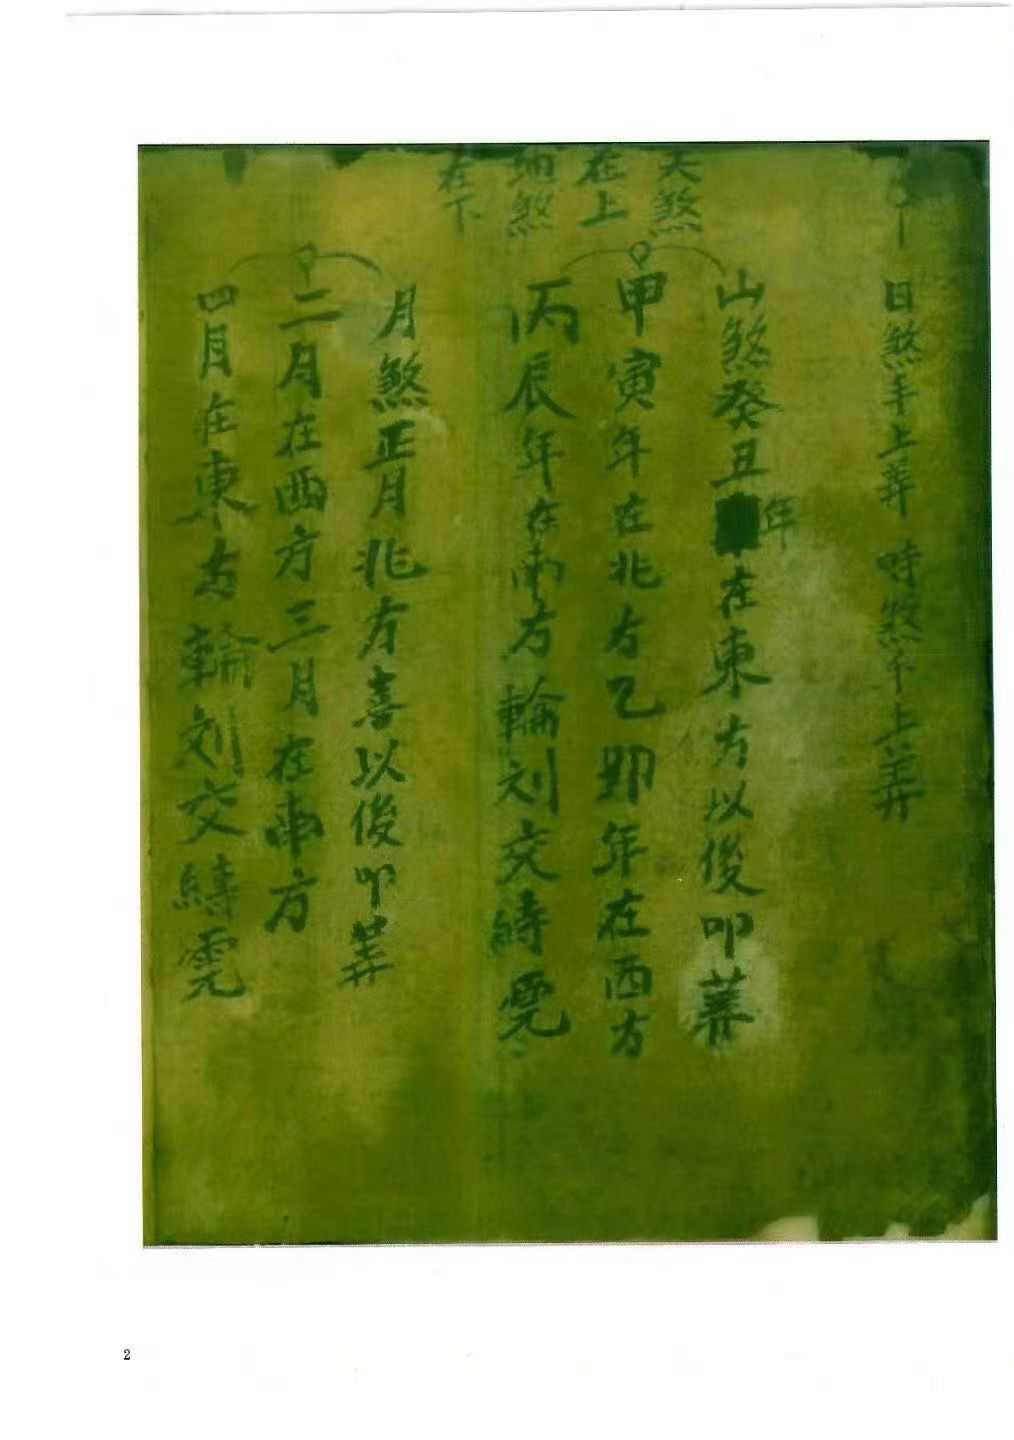 日煞手上葬 時煞手上葬
天煞
在上
地煞
在下
山煞癸丑年在東方以後叩葬
甲寅年在北方乙卯年在西方
丙辰年在南方輪刘交
月煞正月北方喜以後叩葬
二月在西方三月在南方
四月在東方輪刘交
2